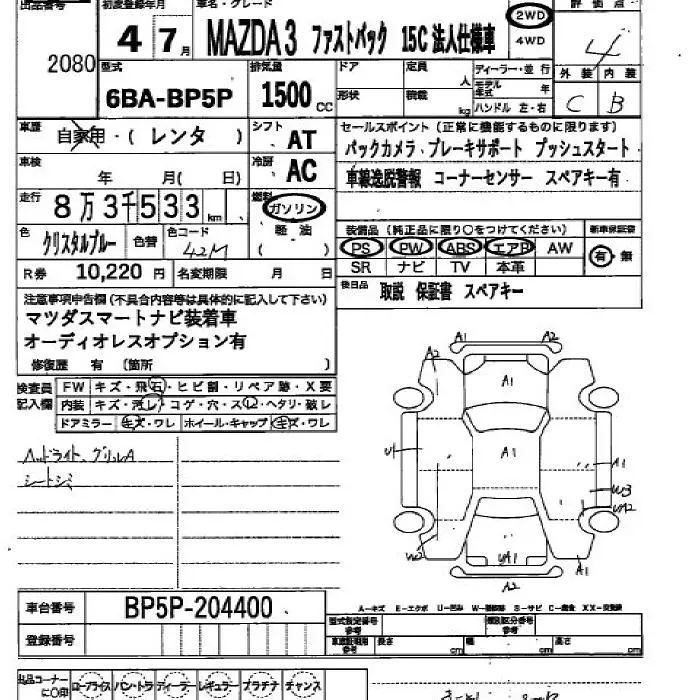 出品番号 初度登録年月 車名・グレード 評価点
2080 4 7月 MAZDA3 ファストバック 15C 法人仕様車 2WD 4WD 4
型式 排気量 ドア 定員 人 ディーラー・並行 外装 内装
6BA-BP5P 1500cc 形状 積載 kg モデル年式 年 ハンドル 左・右 C B
車歴 自家用・(レンタ) シフト AT
セールスポイント(正常に機能するものに限ります)
バックカメラ ブレーキサポート プッシュスタート
車検 年 月( 日) 冷房 AC
車線逸脱警報 コーナーセンサー スペアキー有
走行 8万3千533km 燃料 ガソリン 軽油 ( )
色 クリスタルブルー 色替 色コード 42M
装備品(純正品に限り○をつけてください) 新車保証書
PS PW ABS エアB AW 有・無
SR ナビ TV 本革
R券 10,220円 名変期限 月 日
後日品 取説 保証書 スペアキー
注意事項申告欄(不具合内容等は具体的に記入して下さい)
マツダスマートナビ装着車
オーディオレスオプション有
修復歴 有 〔箇所 〕
検査員記入欄
FW キズ・飛石・ヒビ割・リペア跡・X要
内装 キズ・汚レ・コゲ・穴・スレ・ヘタリ・破レ
ドアミラー キズ・ワレ ホイール・キャップ キズ・ワレ
ヘッドライト、グリルA
シートシミ
A1 A2
A2
A1
U1 A1 A1
W3
UA2
W2 UA1 A1
A2
A-キズ E-エクボ U-凹み W-補修跡 S-サビ C-腐食 XX-交換跡
車台番号 BP5P-204400
型式指定番号 参考 類別区分番号 参考
登録番号
車庫証明用 参考 長さ cm 幅 cm 高さ cm
出品コーナーに○印 ロープライス バントラ ディーラー レギュラー プラチナ チャンス